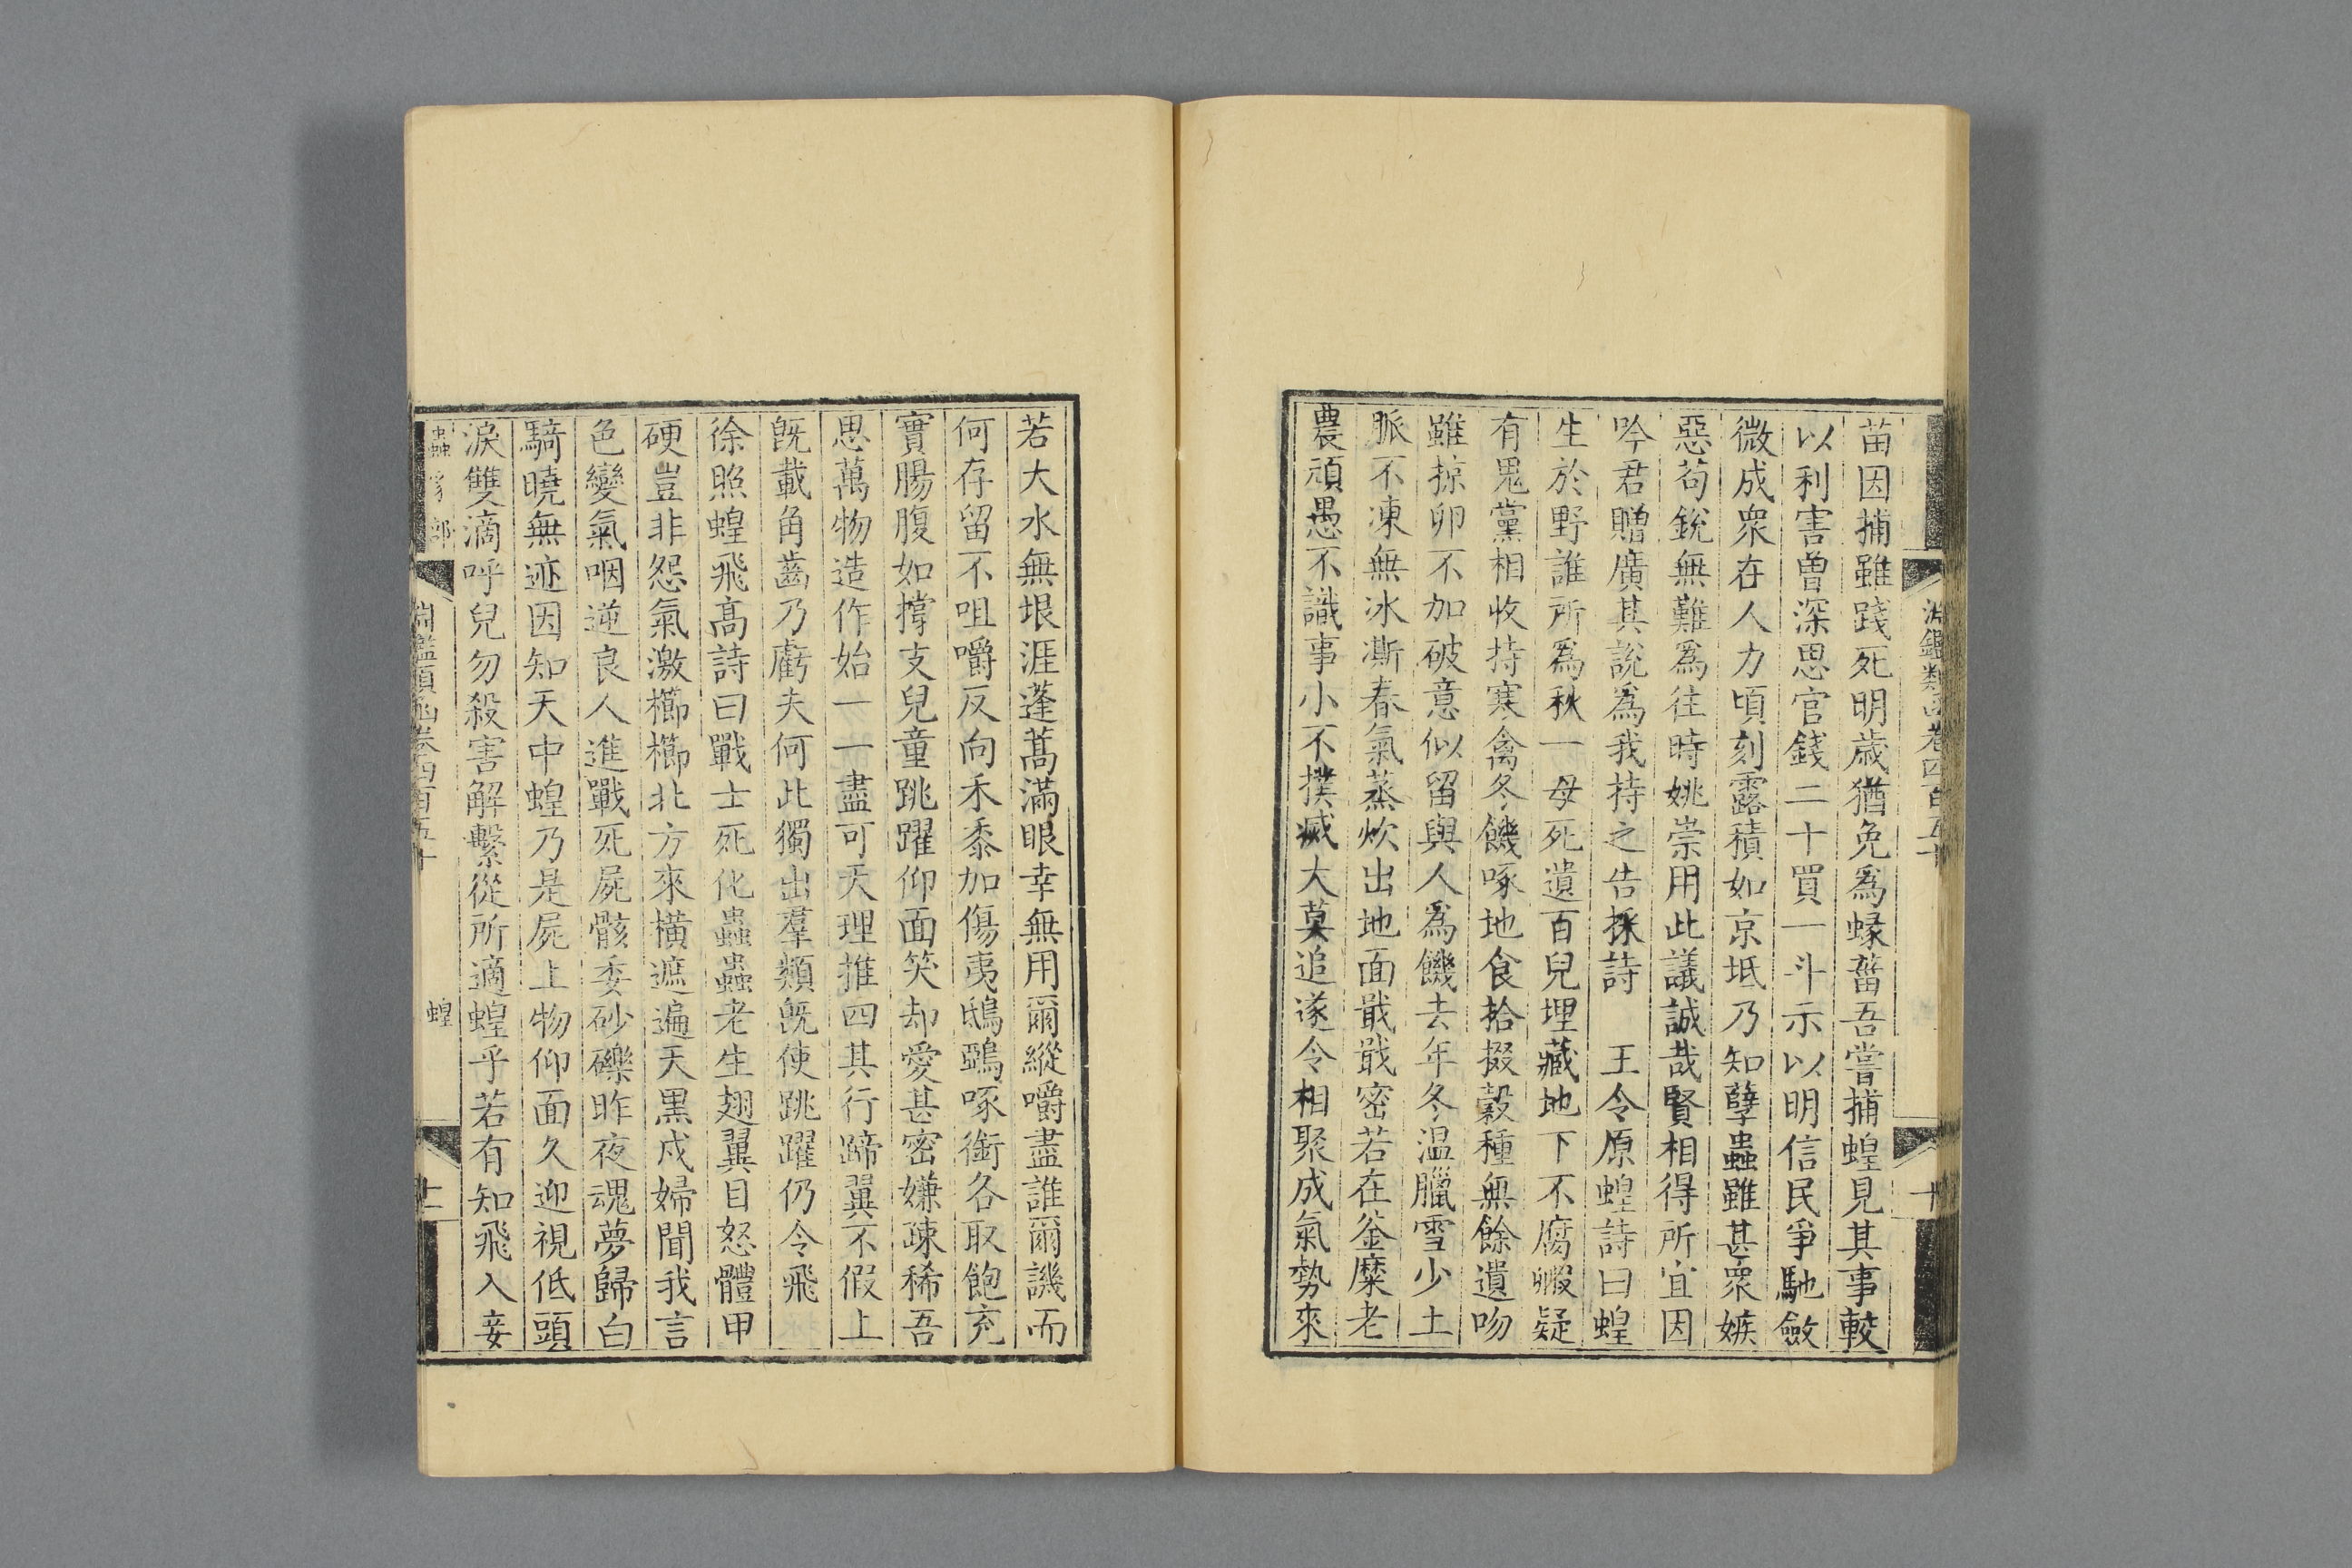 淵鑑類函卷四百五十
十
苗因捕雖踐死明歲猶免爲蝝葘吾嘗捕蝗見其事較
以利害曾深思官錢二十買一斗示以明信民爭馳斂
微成衆在人力頃刻露積如京坻乃知孽蟲雖甚衆嫉
惡苟銳無難爲往時姚崇用此議誠哉賢相得所宜因
吟君贈廣其說爲我持之告採詩　王令原蝗詩曰蝗
生於野誰所爲秋一母死遺百兒埋藏地下不腐㲉疑
有鬼黨相收持寒禽冬饑啄地食拾掇穀種無餘遺吻
雖掠卵不加破意似留與人爲饑去年冬温臘雪少土
脈不凍無冰澌春氣蒸炊出地面戢戢密若在釜糜老
農頑愚不識事小不撲滅大莫追遂令相聚成氣勢來
若大水無垠涯蓬蒿滿眼幸無用爾縱嚼盡誰爾譏而
何存留不咀嚼反向禾黍加傷夷鴟鵶啄銜各取飽充
實腸腹如撐支兒童跳躍仰面笑却愛甚密嫌疎稀吾
思萬物造作始一一盡可天理推四其行蹄翼不假上
旣載角齒乃虧夫何此獨出羣類旣使跳躍仍令飛
徐照蝗飛高詩曰戰士死化蟲蟲老生翅翼目怒體甲
硬豈非怨氣激櫛櫛北方來橫遮遍天黑戍婦聞我言
色變氣咽逆良人進戰死屍骸委砂礫昨夜魂夢歸白
騎曉無迹因知天中蝗乃是屍上物仰面久迎視低頭
淚雙滴呼兒勿殺害解繫從所適蝗乎若有知飛入妾
蟲豸部
蝗
淵鑑類函卷四百五十